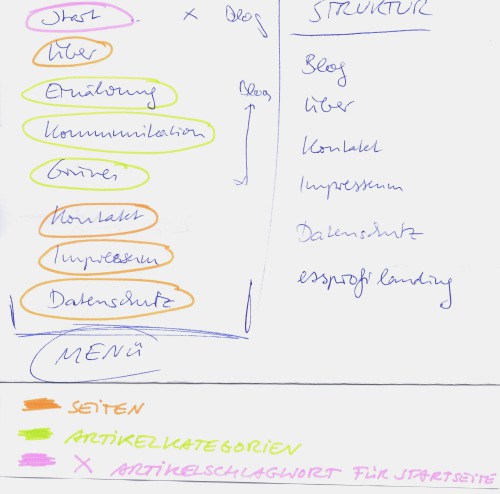 Start × Blog
Über
Ernährung
Kommunikation
Grünes
Kontakt
Impressum
Datenschutz
MENÜ
Blog
STRUKTUR
Blog
Über
Kontakt
Impressum
Datenschutz
essprofi landing
SEITEN
ARTIKELKATEGORIEN
× ARTIKELSCHLAGWORT FÜR STARTSEITE